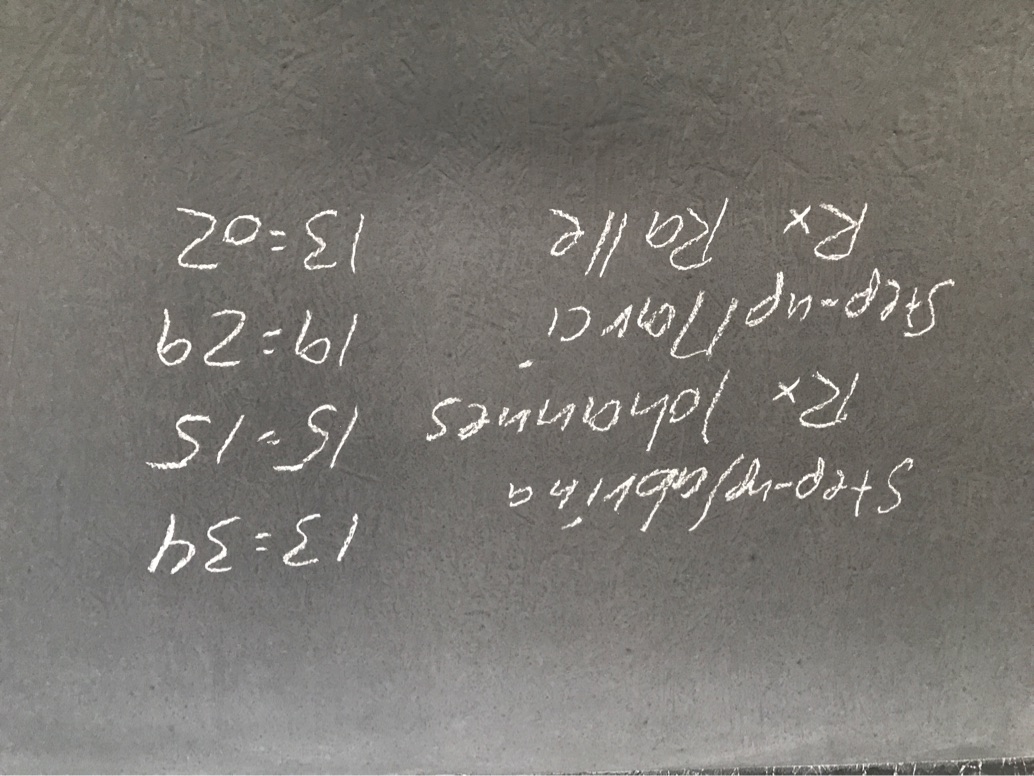 Step-up Sabrina 13:34
Rx Johannes 15:15
Step-up Marci 19:29
Rx Ralle 13:02